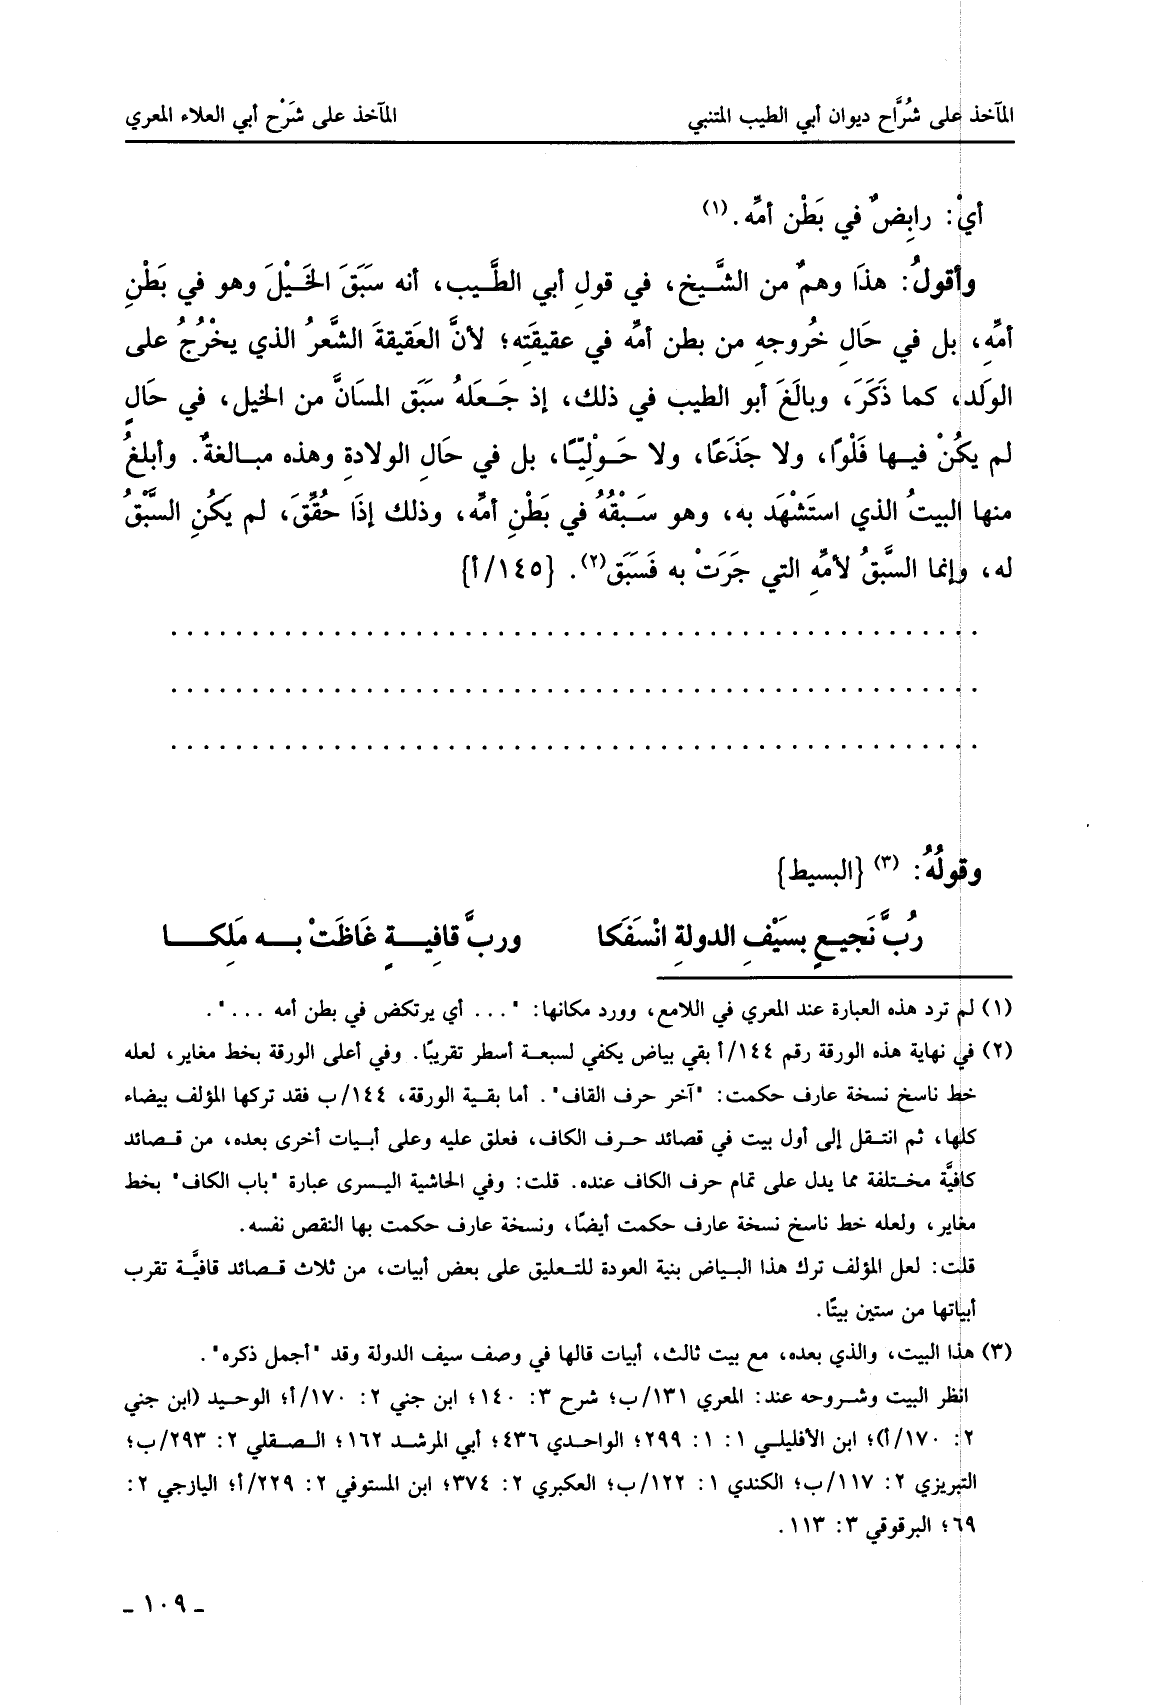 المآخذ على شُرَّاح ديوان أبي الطيب المتنبي المآخذ على شَرْح أبي العلاء المعري
أيْ: رابِضٌ في بَطْن أمِّه.(١)
وأقولُ: هذَا وهمٌ من الشَّيخ، في قولِ أبي الطَّيب، أنه سَبَقَ الخَيْلَ وهو في بَطْنِ
أمِّهِ، بل في حَالِ خُروجهِ من بطن أمِّه في عقيقَتِه؛ لأنَّ العَقيقةَ الشَّعرُ الذي يخْرُجُ على
الولَد، كما ذَكَرَ، وبالَغَ أبو الطيب في ذلك، إذ جَعَلهُ سَبَق المسَانَّ من الخيل، في حَالٍ
لم يكُنْ فيها فَلْوًا، ولا جَذَعًا، ولا حَوْليّا، بل في حَالِ الولادةِ وهذه مبالغةٌ. وأبلغُ
منها البيتُ الذي استَشْهَد به، وهو سَبْقُهُ في بَطْنِ أمِّه، وذلك إذَا حُقِّقَ، لم يَكُنِ السَّبْقُ
له، وإنما السَّبقُ لأمِّهِ التي جَرَتْ به فَسَبَق(٢). {١٤٥/أ}
. . . . . . . . . . . . . . . . . . . . . . . . . . . . . . . . . . . . . . . . . . . . . . . . . .
. . . . . . . . . . . . . . . . . . . . . . . . . . . . . . . . . . . . . . . . . . . . . . . . . .
. . . . . . . . . . . . . . . . . . . . . . . . . . . . . . . . . . . . . . . . . . . . . . . . . .
وقولُهُ: (٣) {البسيط}
رُبَّ نَجيعٍ بسَيْفِ الدولةِ انْسَفَكا وربَّ قافِيةٍ غَاظَتْ به مَلِكا
(١) لم ترد هذه العبارة عند المعري في اللامع، وورد مكانها: "... أي يرتكض في بطن أمه ...".
(٢) في نهاية هذه الورقة رقم ١٤٤/أ بقي بياض يكفي لسبعة أسطر تقريبًا. وفي أعلى الورقة بخط مغاير، لعله
خط ناسخ نسخة عارف حكمت: "آخر حرف القاف". أما بقية الورقة، ١٤٤/ب فقد تركها المؤلف بيضاء
كلها، ثم انتقل إلى أول بيت في قصائد حرف الكاف، فعلق عليه وعلى أبيات أخرى بعده، من قصائد
كافيَّة مختلفة مما يدل على تمام حرف الكاف عنده. قلت: وفي الحاشية اليسرى عبارة "باب الكاف" بخط
مغاير، ولعله خط ناسخ نسخة عارف حكمت أيضًا، ونسخة عارف حكمت بها النقص نفسه.
قلت: لعل المؤلف ترك هذا البياض بنية العودة للتعليق على بعض أبيات، من ثلاث قصائد قافيَّة تقرب
أبياتها من ستين بيتًا.
(٣) هذا البيت، والذي بعده، مع بيت ثالث، أبيات قالها في وصف سيف الدولة وقد "أجمل ذكره".
انظر البيت وشروحه عند: المعري ١٣١/ب؛ شرح ٣: ١٤٠؛ ابن جني ٢: ١٧٠/أ؛ الوحيد (ابن جني
٢: ١٧٠/أ)؛ ابن الأفليلي ١: ١: ٢٩٩؛ الواحدي ٤٣٦؛ أبي المرشد ١٦٢؛ الصقلي ٢: ٢٩٣/ب؛
التبريزي ٢: ١١٧/ب؛ الكندي ١: ١٢٢/ب؛ العكبري ٢: ٣٧٤؛ ابن المستوفي ٢: ٢٢٩/أ؛ اليازجي ٢:
٦٩؛ البرقوقي ٣: ١١٣.
ـ ١٠٩ ـ